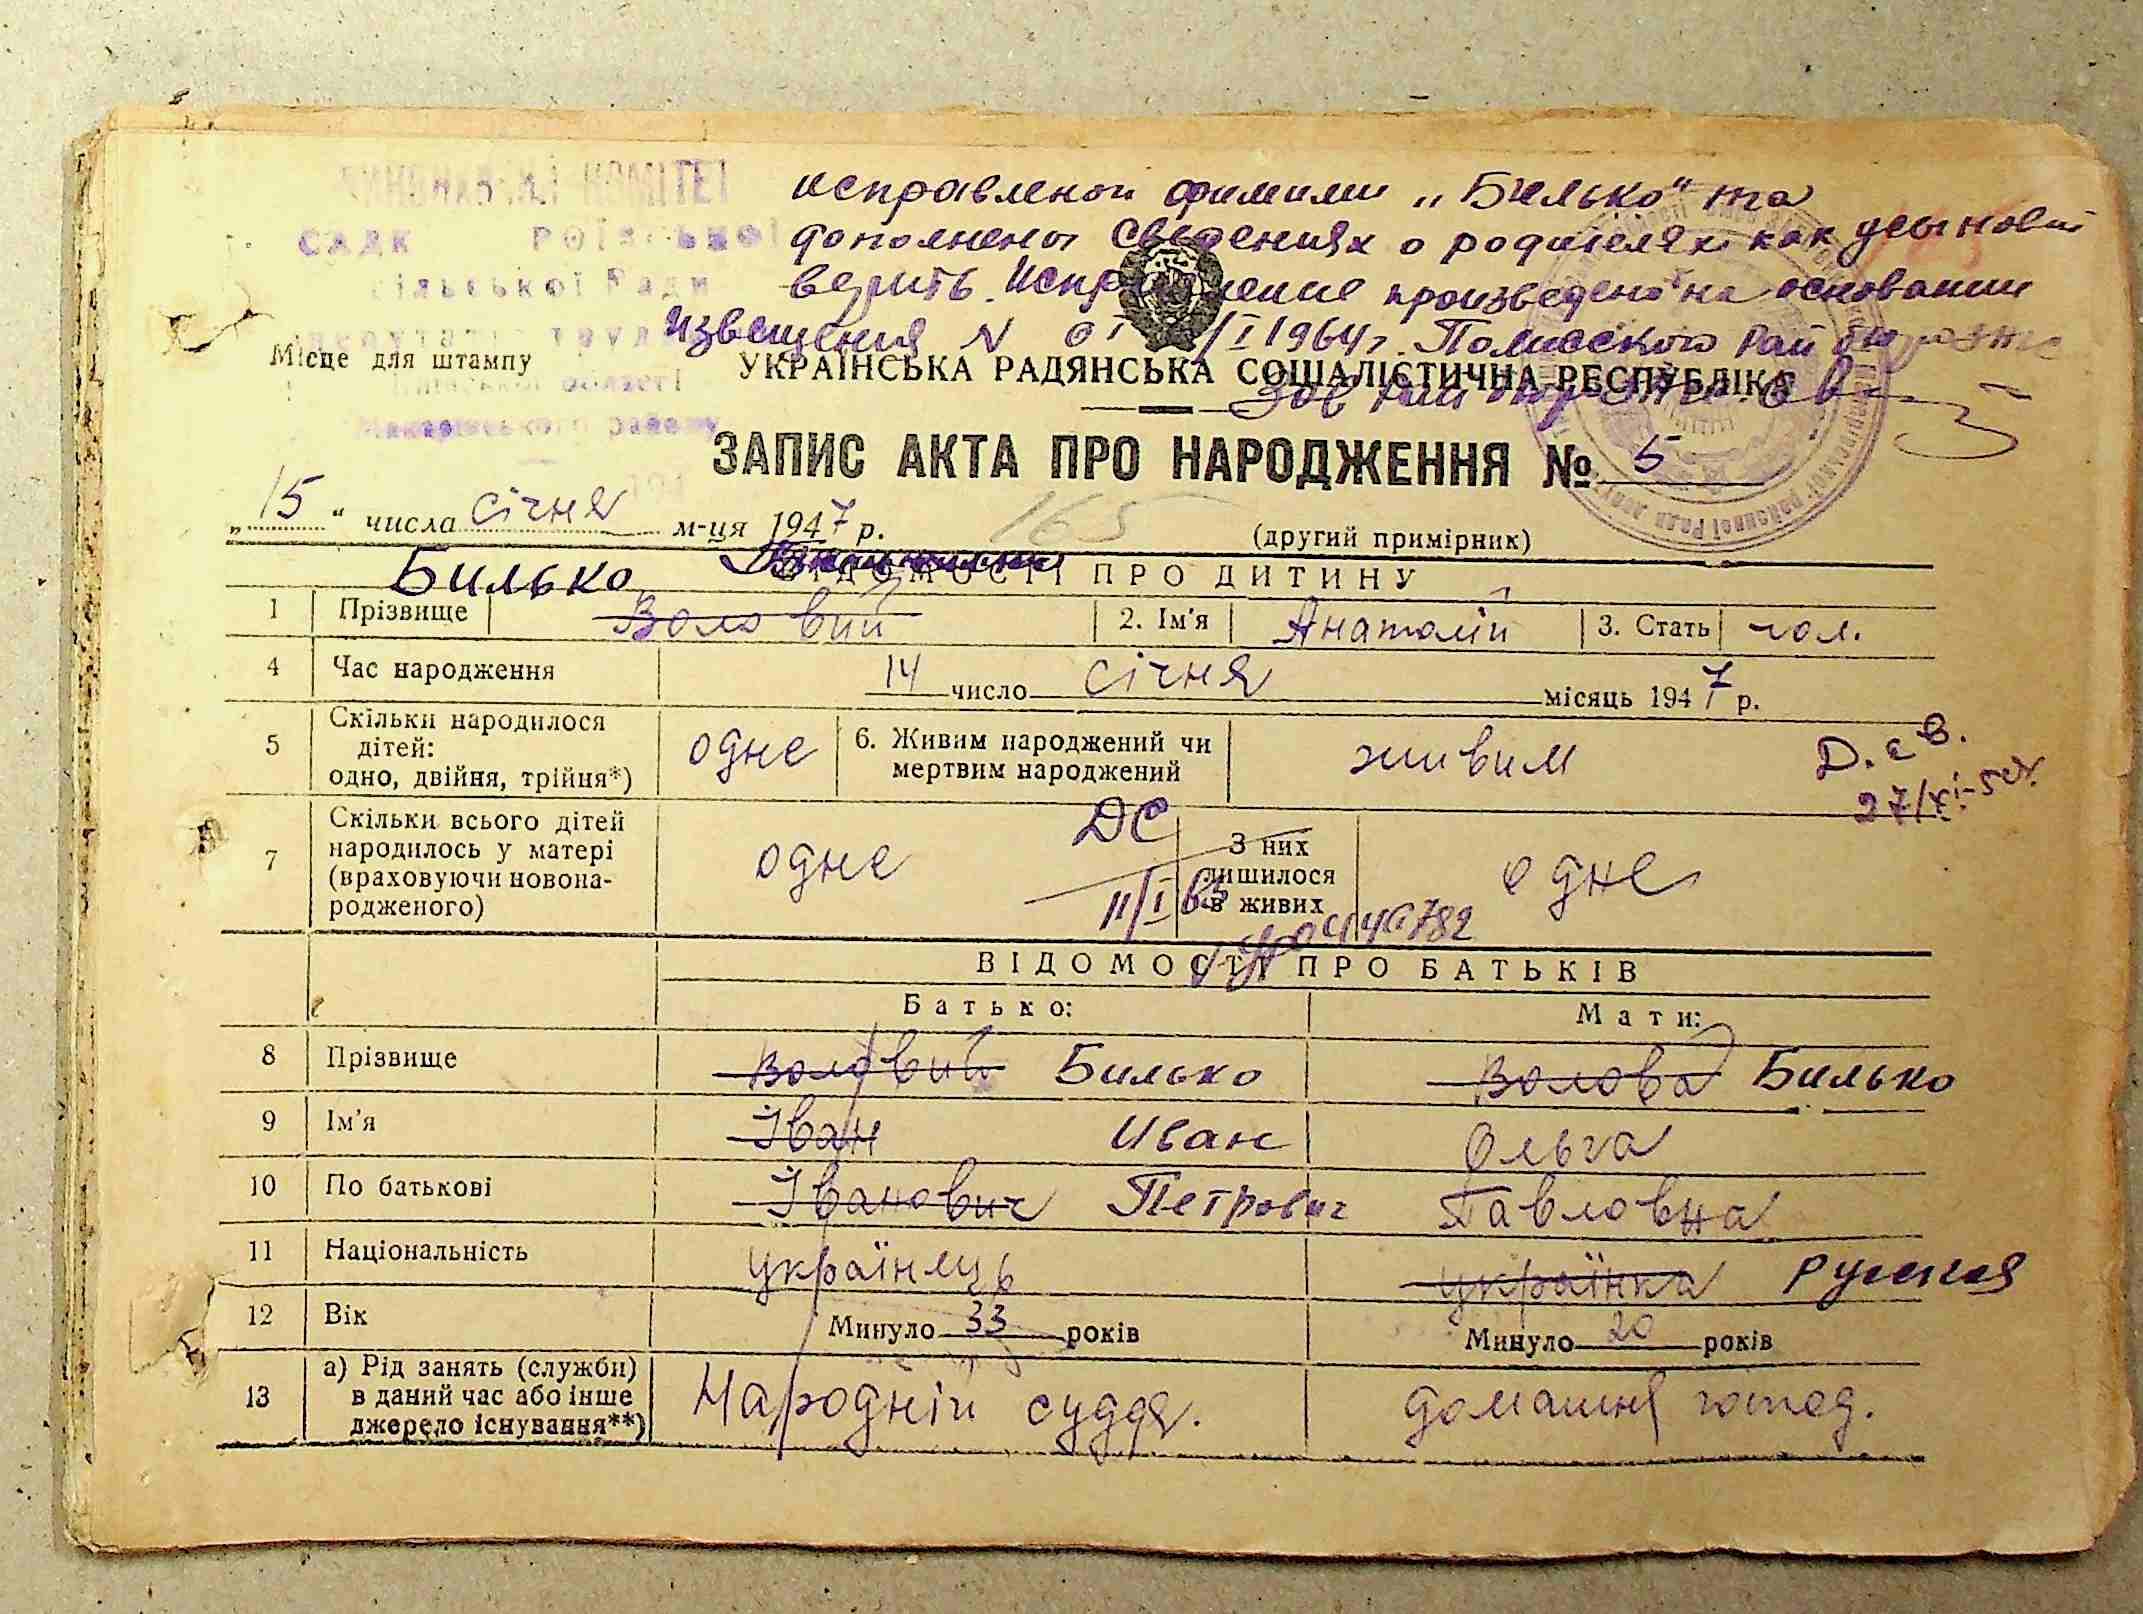 КОМІТЕТ
САДК РОЇВСЬКОЇ
сільської Ради
депутатів труд
Київської області
Макарівського району
исправленой фамилии „Билько" та
дополнены сведениях о родителях как усынови
Исправление произведено на основании
Извещения N 01 /I 1964г.
Місце для штампу
УКРАЇНСЬКА РАДЯНСЬКА СОЦІАЛІСТИЧНА РЕСПУБЛІКА
ЗАПИС АКТА ПРО НАРОДЖЕННЯ № 5
„15" числа січня м-ця 1947 р. 165 (другий примірник)
Билько ВІДОМОСТІ ПРО ДИТИНУ
1 Прізвище Воловий 2. Ім'я Анатолій 3. Стать чол.
4 Час народження 14 число січня місяць 1947 р.
5 Скільки народилося дітей: одно, двійня, трійня*) одне 6. Живим народжений чи мертвим народжений живим
27/XI-
7 Скільки всього дітей народилось у матері (враховуючи новонародженого) одне З них лишилося в живих одне
ДС
11/I
ВІДОМОСТІ ПРО БАТЬКІВ
Батько: Мати:
8 Прізвище Воловий Билько Волова Билько
9 Ім'я Іван Иван Ольга
10 По батькові Іванович Петрович Павловна
11 Національність українець українка Русская
12 Вік Минуло 33 років Минуло 20 років
13 а) Рід занять (служби) в даний час або інше джерело існування**) Народній суддя. домашня господ.